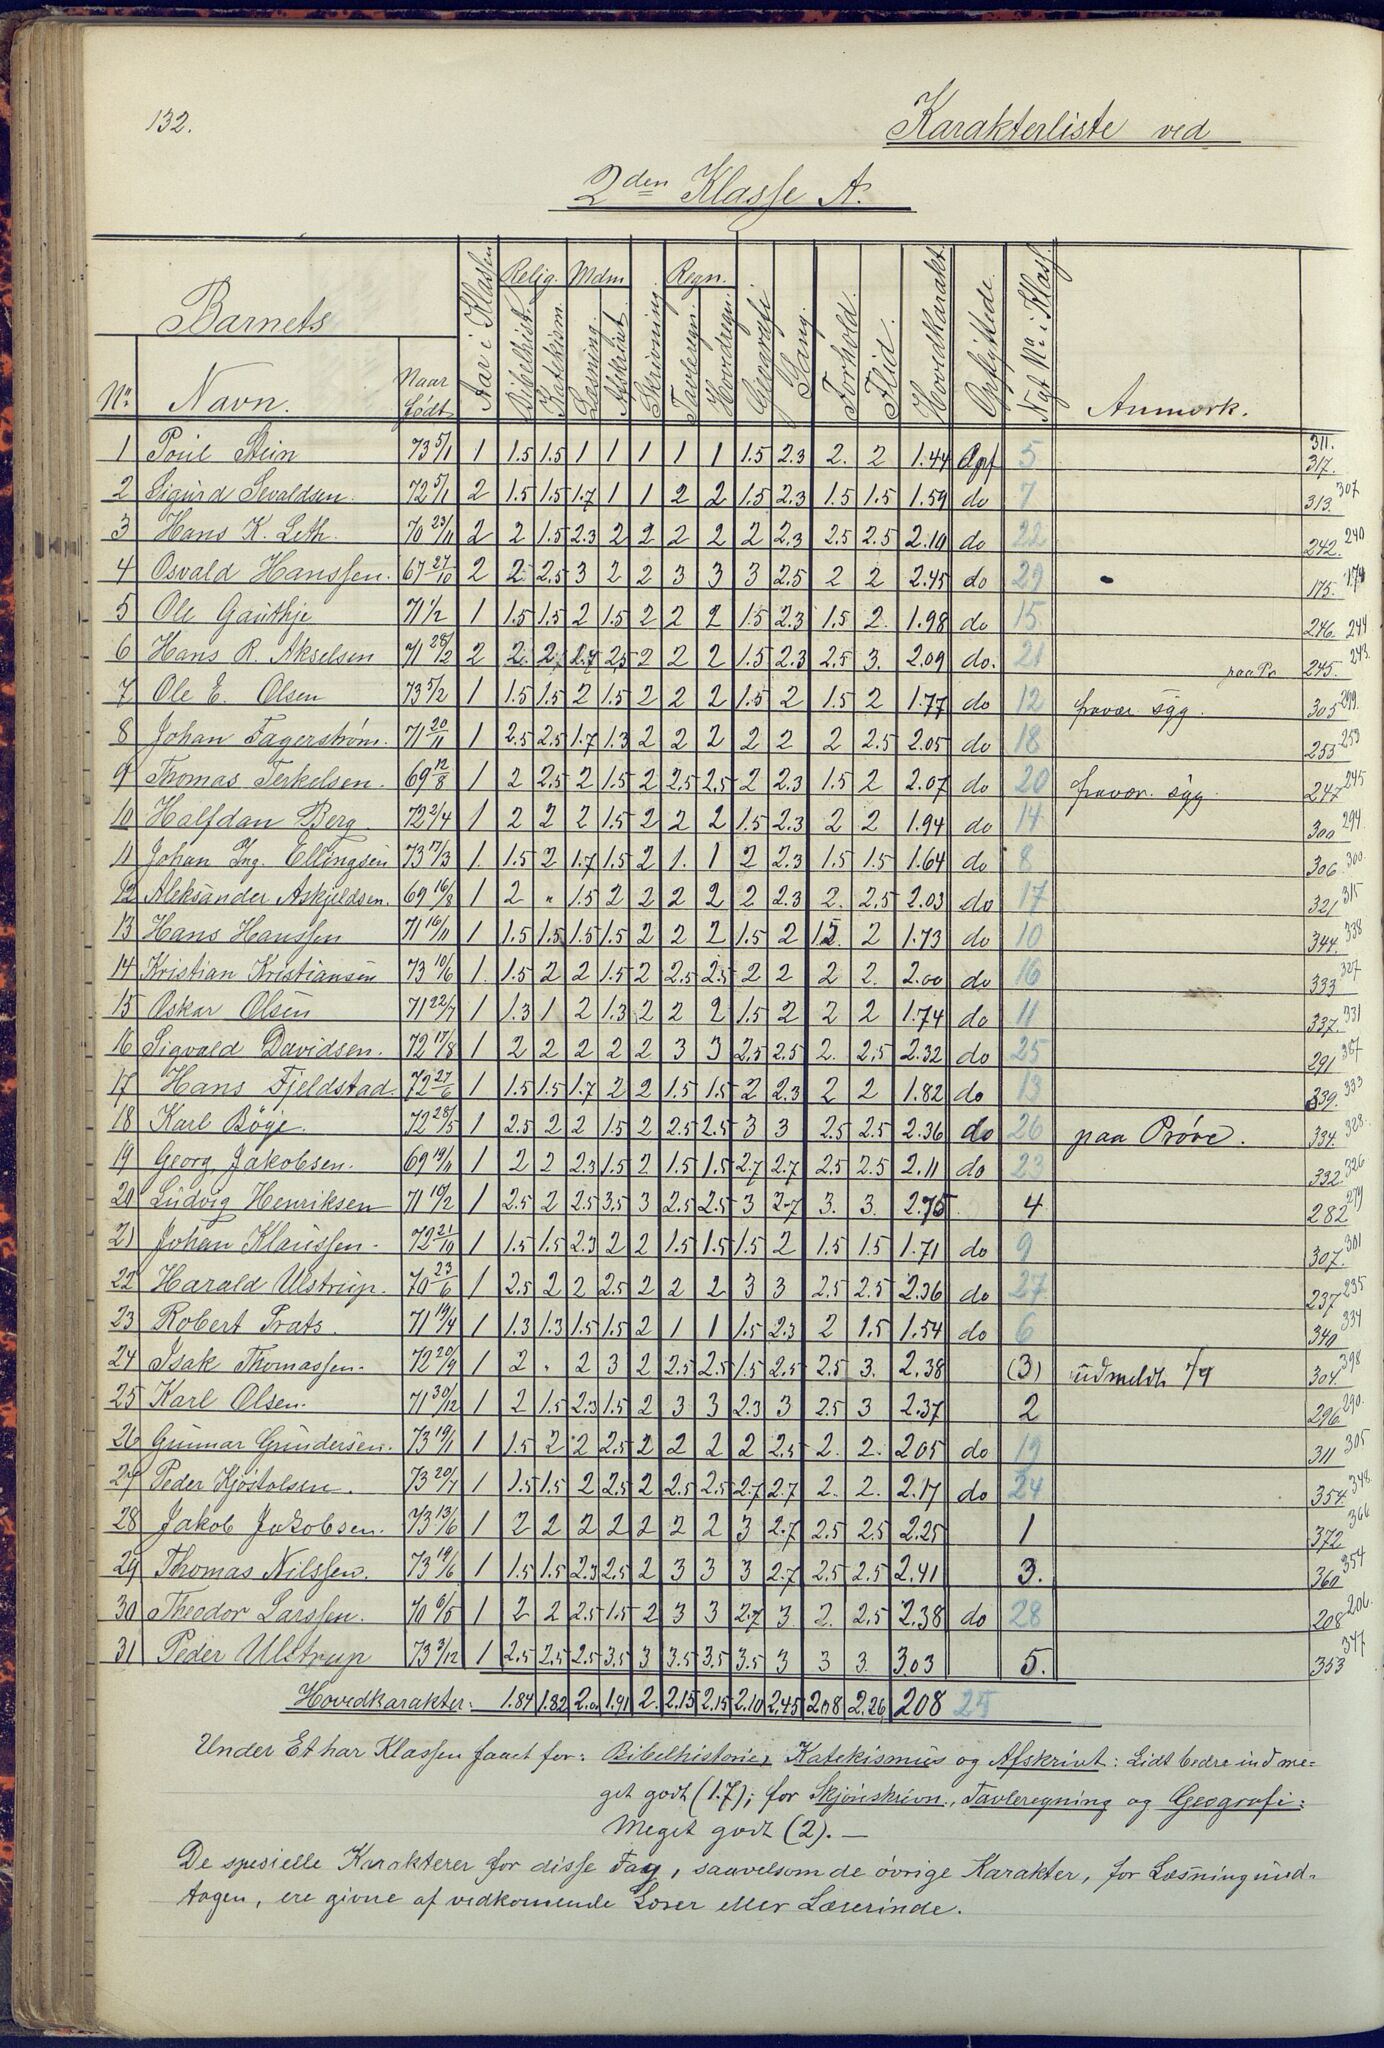 132.
Karakterliste ved
2den Klasse A.
Barnets
No Navn. Naar født Aar i Klassen Relig. Bibelhist. Katekism. Mdm Læsning. Afskrivt. Skrivning. Regn. Tavleregn. Hovedregn. Geografi Sang. Forhold. Flid. Hovedkarakt. Opflyttede. Nyt No i Klas. Anmærk.
1 Poul Stein 73 5/1 1 1.5 1.5 1 1 1 1 1 1.5 2.3 2. 2 1.44 Opf 5 311. 317.
2 Sigurd Sevaldsen. 72 5/1 2 1.5 1.5 1.7 1 1 2 2 1.5 2.3 1.5 1.5 1.59 do 7 313. 307
3 Hans K. Leth. 70 23/11 2 2 1.5 2.3 2 2 2 2 2 2.3 2.5 2.5 2.10 do 22 242. 240
4 Osvald Hanssen. 67 27/10 2 2 2.5 3 2 2 3 3 3 2.5 2 2 2.45 do 29 175. 174
5 Ole Gauthje 71 1/2 1 1.5 1.5 2 1.5 2 2 2 1.5 2.3 1.5 2. 1.98 do 15 246. 244
6 Hans R. Akselsen 71 28/12 2 2. 2. 2.7 2.5 2 2 2 1.5 2.3 2.5 3. 2.09 do. 21 paa Pr 245. 243.
7 Ole E. Olsen 73 5/2 1 1.5 1.5 2 1.5 2 2 2 1.5 2 1.5 2 1.77 do 12 fravær. syg. 305 299.
8 Johan Fagerstrøm. 71 20/11 1 2.5 2.5 1.7 1.3 2 2 2 2 2 2 2.5 2.05 do 18 255 253
9 Thomas Terkelsen. 69 12/8 1 2 2.5 2 1.5 2 2.5 2.5 2 2.3 1.5 2 2.07 do 20 fravær. syg 247 245
10 Halfdan Berg 72 2/4 1 2 2 2 1.5 2 2 2 1.5 2.3 2 2 1.94 do 14 300 294
11 Johan Ing. Ellingsen 73 17/3 1. 1.5 2 1.7 1.5 2 1. 1 2 2.3 1.5 1.5 1.64 do 8 306. 300.
12 Aleksander Askjeldsen. 69 16/3 1 2 " 1.5 2 2 2 2 2 2.3 2. 2.5 2.03 do 17 321 315
13 Hans Hanssen 71 16/11 1 1.5 1.5 1.5 1.5 2 2 2 1.5 2 1.5 2 1.73 do 10 344. 338
14 Kristian Kristiansen 73 10/6 1. 1.5 2 2 1.5 2 2.5 2.5 2 2 2 2. 2.00 do 16 333 327
15 Oskar Olsen 71 22/7 1 1.3 1 2 1.3 2 2 2 1.5 2 2 2 1.74 do 11 337. 331
16 Sigvald Davidsen. 72 17/8 1 2 2 2 2 2 3 3 2.5 2.5 2. 2.5 2.32 do 25 291 387
17 Hans Fjeldstad. 72 27/6 1 1.5 1.5 1.7 2 2 1.5 1.5 2 2.3 2 2 1.82 do 13 339. 333
18 Karl Böge. 72 28/5 1 2.5 2 2 1.5 2 2.5 2.5 3 3 2.5 2.5 2.36 do 26 paa Prøve. 334. 328.
19 Georg Jakobsen. 69 19/11 1 2 2 2.3 1.5 2 1.5 1.5 2.7 2.7 2.5 2.5 2.11 do 23 332. 326
20 Ludvig Henriksen 71 10/2 1 2.5 2 2.5 3.5 3 2.5 2.5 3 2.7 3. 3. 2.75 4 282 279
21 Johan Klaussen. 72 21/10 1 1.5 1.5 2.3 2 2 1.5 1.5 1.5 2 1.5 1.5 1.71 do 9 307. 301
22 Harald Ulstrup. 70 23/6 1 2.5 2 2 2.5 2 2 2 3 3 2.5 2.5 2.36 do 27 237 235
23 Robert Prats. 71 19/4 1 1.3 1.3 1.5 1.5 2 1 1 1.5 2.3 2 1.5 1.54 do 6 340 334
24 Isak Thomassen. 72 20/9 1 2 . 2 3 2 2.5 2.5 1.5 2.5 2.5 3. 2.38 (3) udmeldt 1/9 304. 398
25 Karl Olsen. 71 30/12 1 2 1.5 2.3 1.5 2 3 3 2.3 3 2.5 3 2.37 2 296. 290.
26 Gunnar Gundersen. 73 19/1 1 1.5 2 2 2.5 2 2 2 2 2.5 2. 2. 205 do 19 311 305
27 Peder Kjöstolsen. 73 20/7 1 1.5 1.5 2 2.5 2 2.5 2.5 2.7 2.7 2. 2. 2.17 do 24 354. 348.
28 Jakob Jakobsen. 73 13/6 1 2 2 2 2 2 2 2 3 2.7 2.5 2.5 2.25 1 372 366
29 Thomas Nilssen. 73 19/6 1 1.5 1.5 2.3 2.5 2 3 3 3 2.7 2.5 2.5 2.41 3. 360 354
30 Theodor Larssen. 70 6/5 1 2 2 2.5 1.5 2 3 3 2.7 3 2. 2.5 2.38 do 28 208 206.
31 Peder Ulstrup 73 3/12 1 2.5 2.5 2.5 3.5 3 3.5 3.5 3.5 3 3 3. 303 5. 353 347
Hovedkarakter: 1.84 1.82 2.0 1.91 2. 2.15 2.15 2.10 2.45 2.08 2.26 208 25
Under Et har Klassen faaet for: Bibelhistorie, Katekismus og Afskrivt: Lidt bedre ind me=
get godt (1.7); for Skjönskrivn., Tavleregning og Geografi:
Meget godt (2). —
De spesielle Karakterer for disse Fag, saavelsom de övrige Karakter, for Læsning und=
tagen, ere givne af vedkomende Lærer eller Lærerinde.